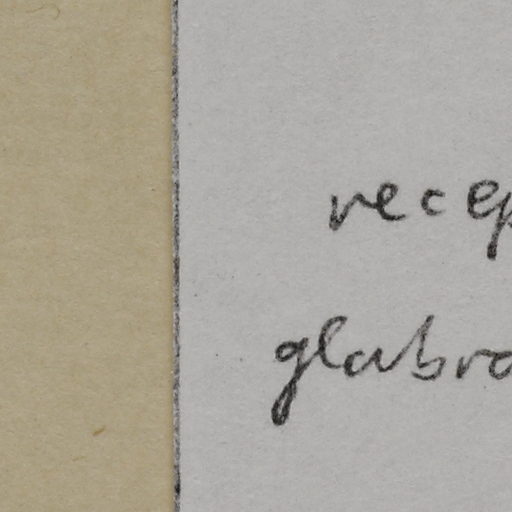 recep
glabro